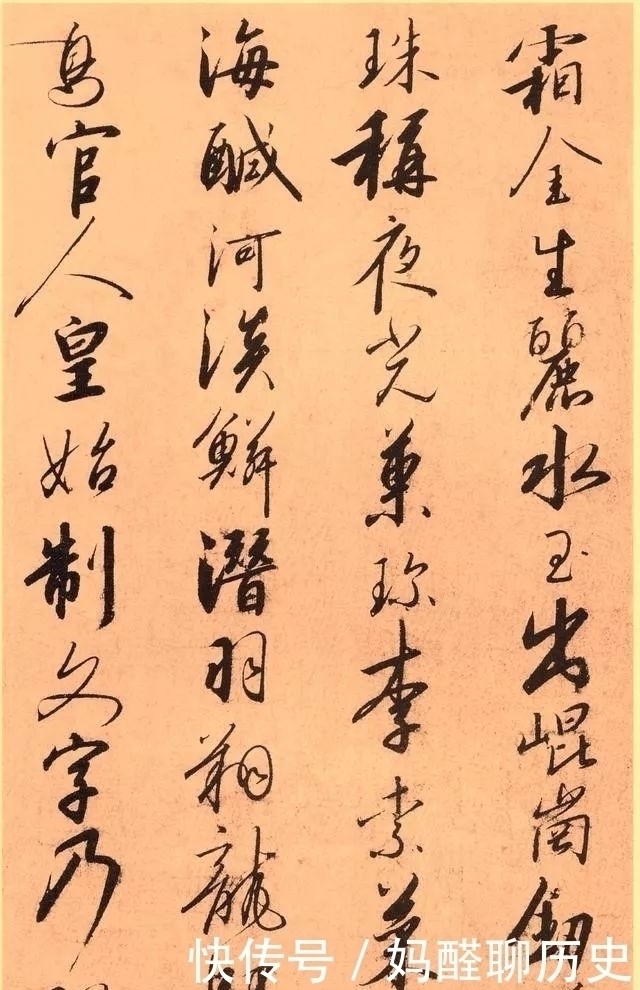 霜金生麗水玉出崐崗釼
珠稱夜光菓珍李柰菜
海醎河淡鱗潛羽翔龍
鳥官人皇始制文字乃
快传号 / 妈醛聊历史